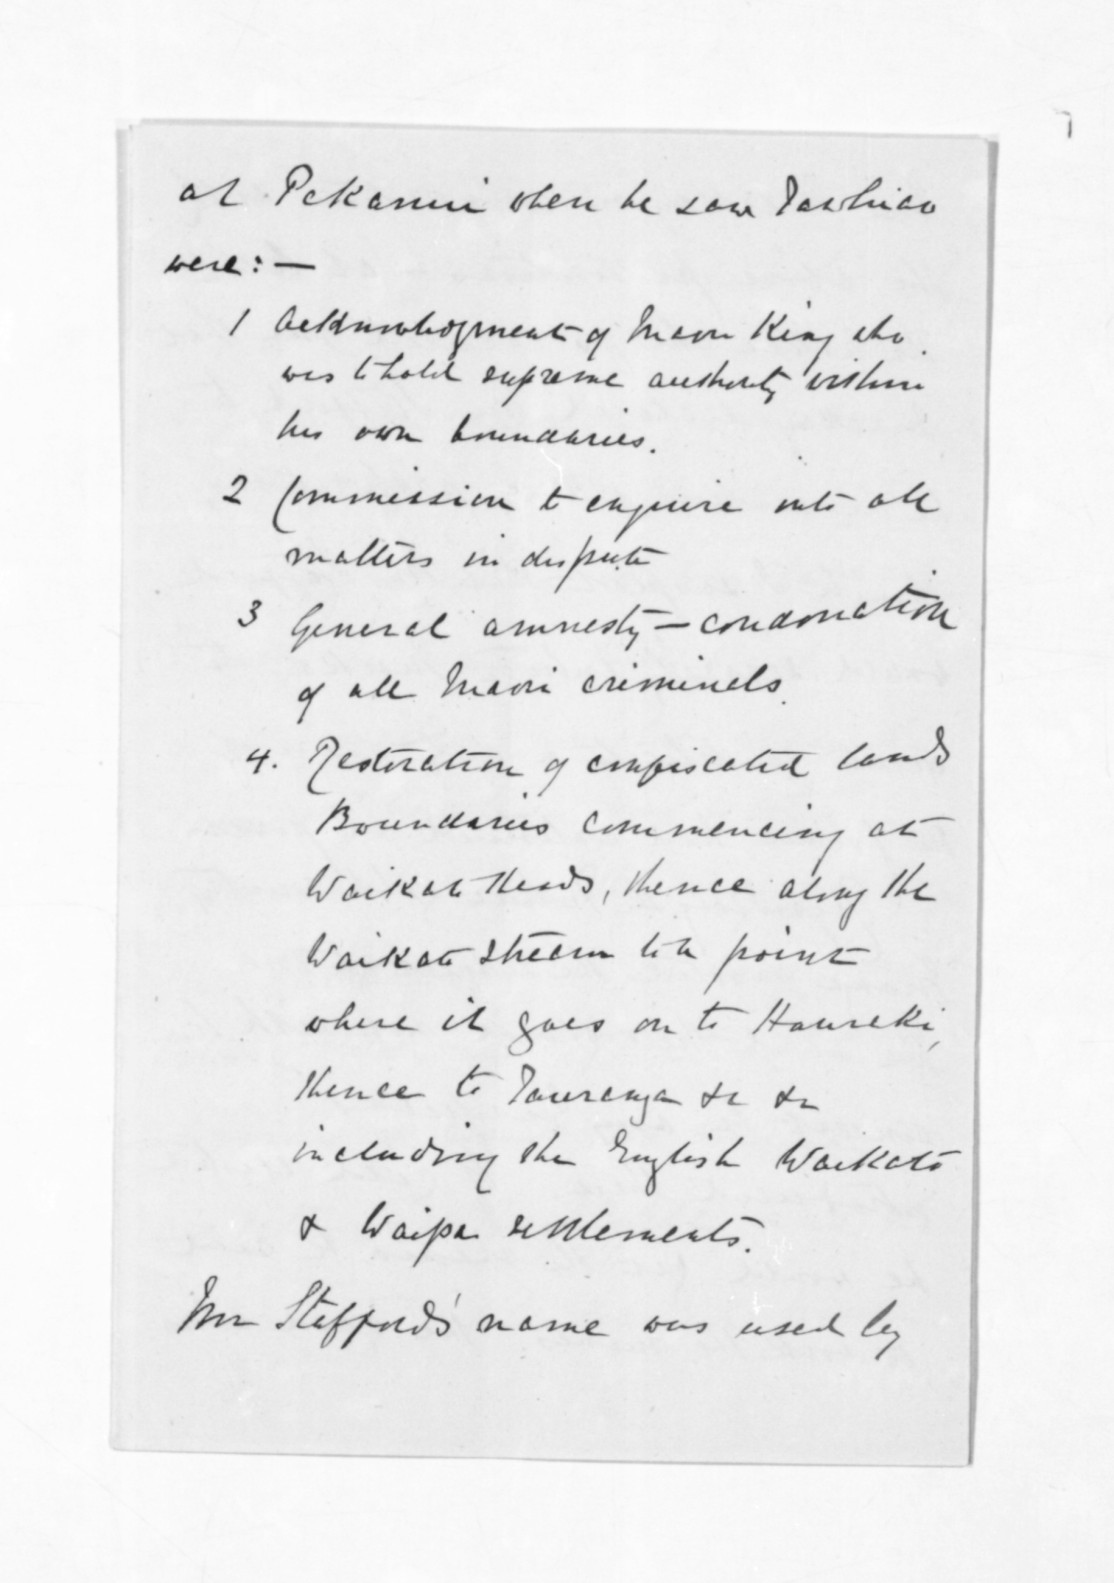 at Pekanui when he saw Tawhiao
were: —
1 Acknowledgment of Maori King who
was to hold supreme authority within
his own boundaries.
2 Commission to enquire into all
matters in dispute
3 General amnesty — condonation
of all Maori criminals.
4. Restoration of confiscated lands
Boundaries commencing at
Waikato Heads, thence along the
Waikato Stream to the point
where it goes on to Hauraki,
thence to Tauranga &c &c
including the English Waikato
& Waipa settlements.
Mr Stafford's name was used by